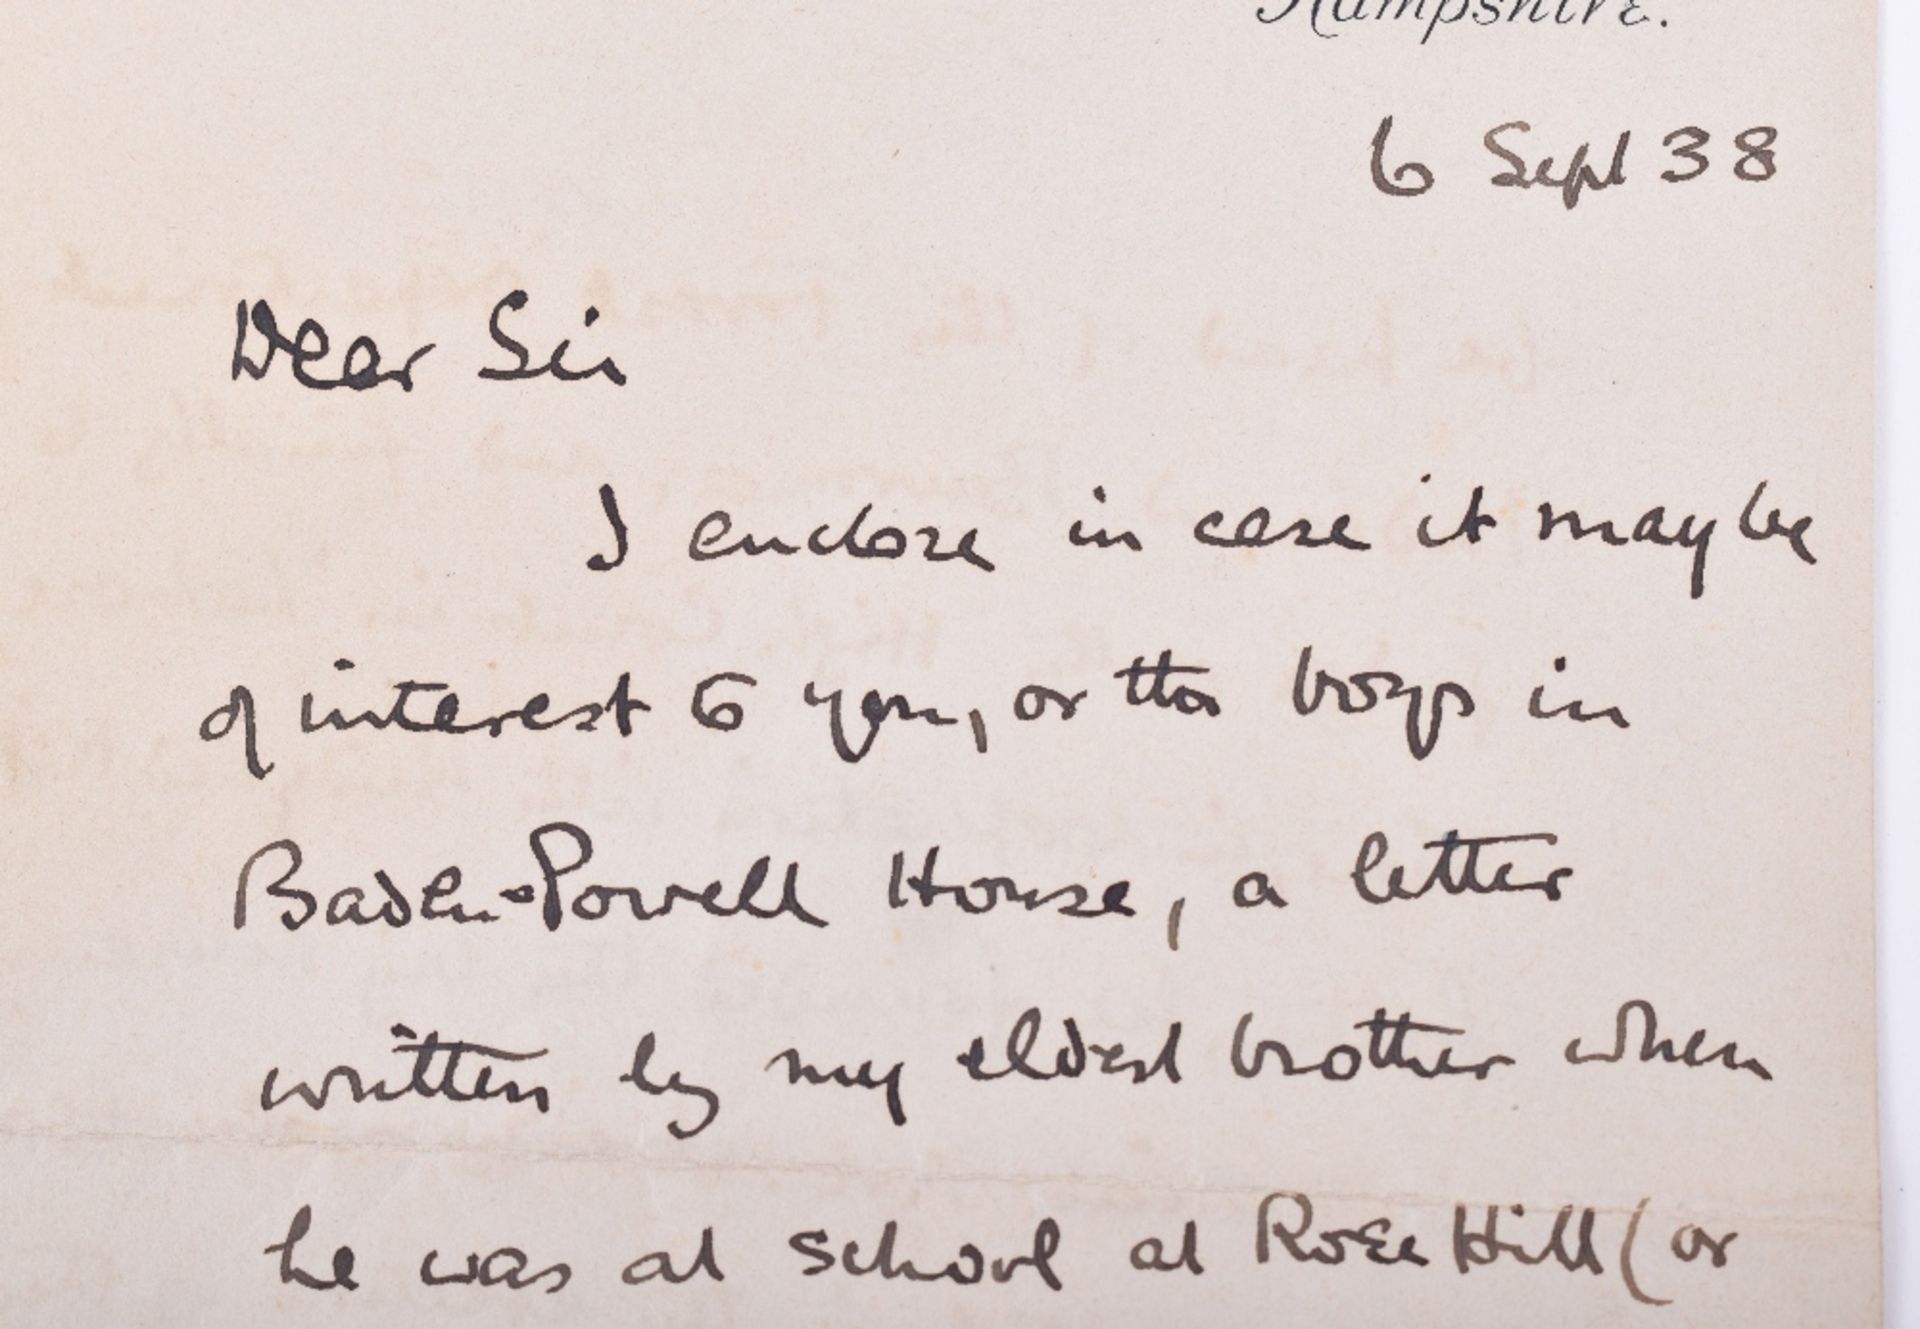 Hampshire.
6 Sept 38
Dear Sir
I enclose in case it may be
of interest to you, or to boys in
Baden-Powell House, a letter
written by my eldest brother when
he was at school at Rose Hill (or